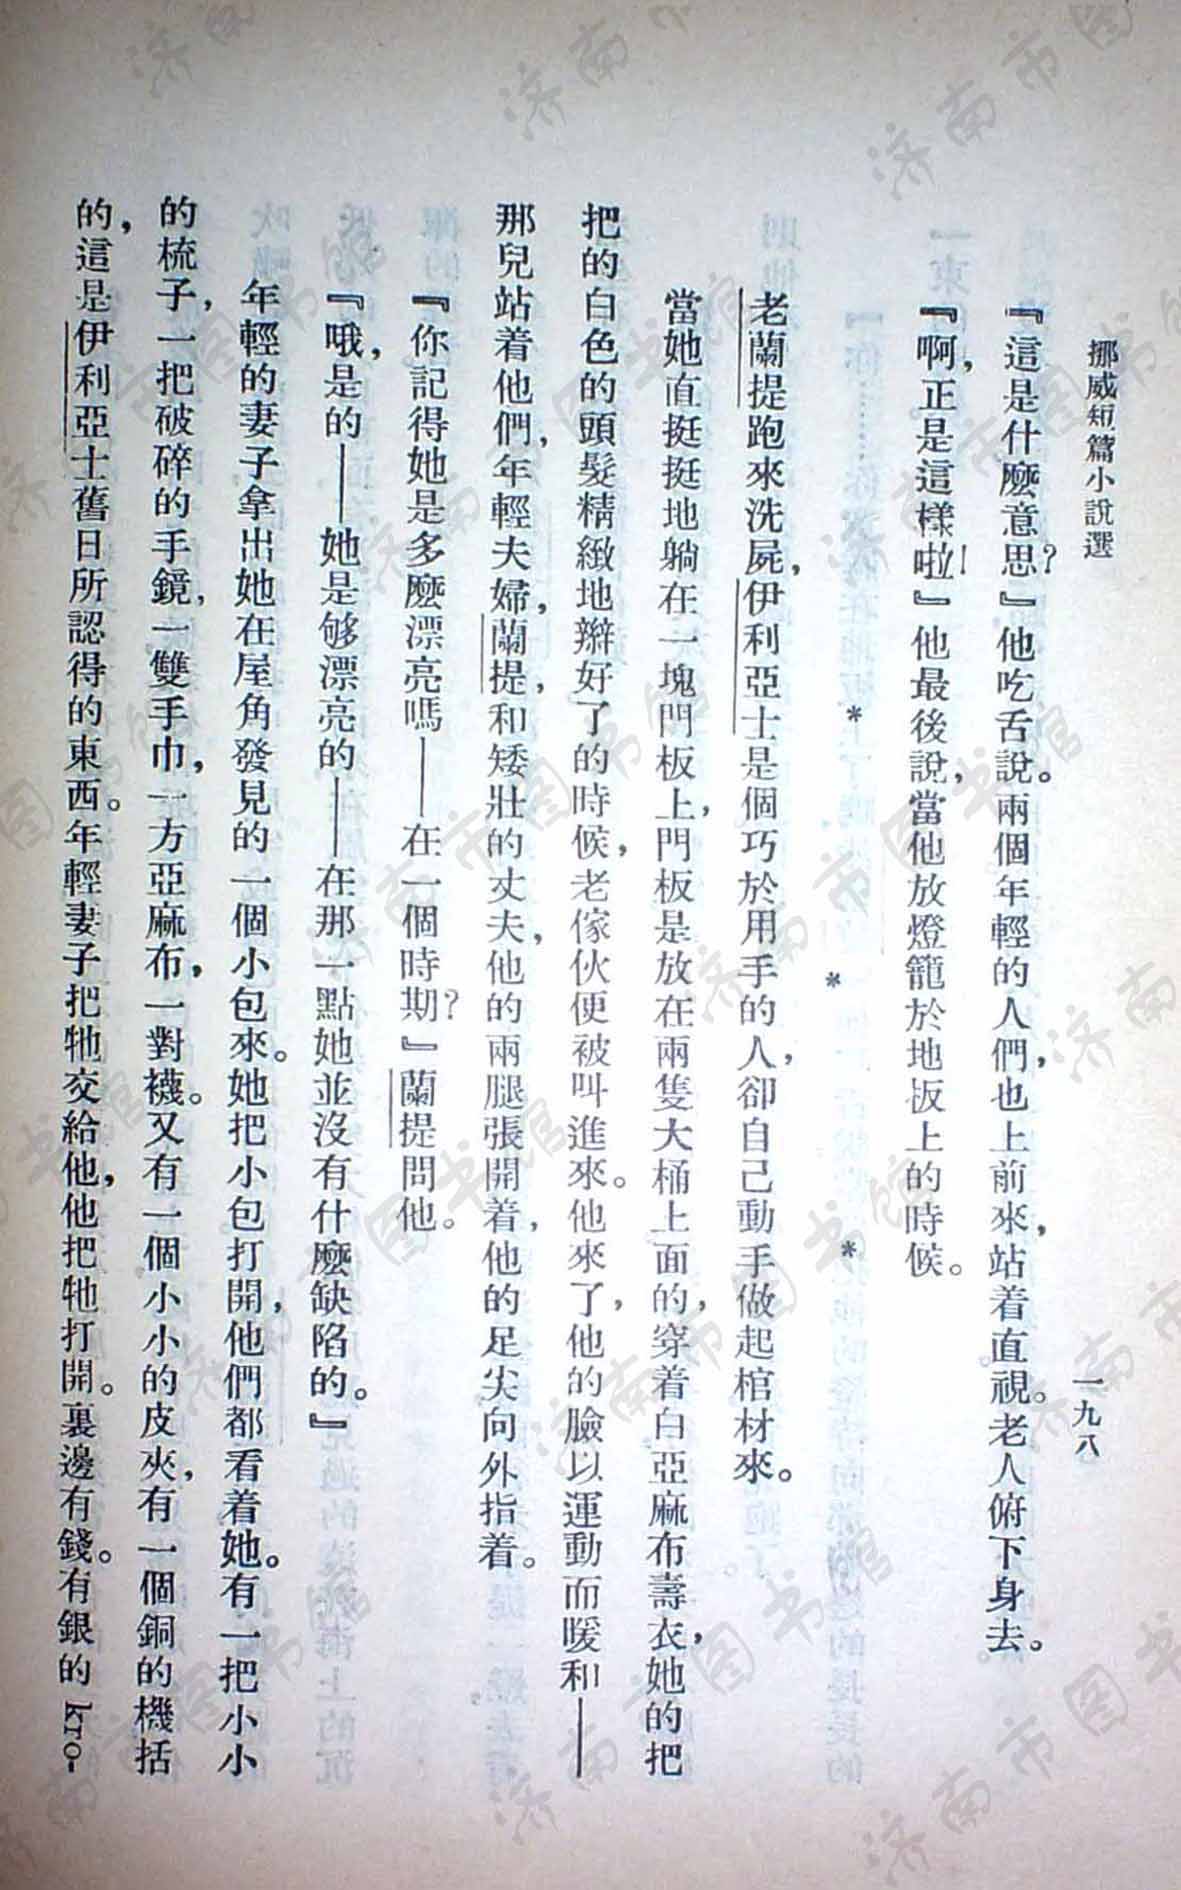 挪威短篇小說選
一九八
『這是什麼意思？』他吃舌說。兩個年輕的人們，也上前來，站着直視。老人俯下身去。
『啊，正是這樣啦！』他最後說，當他放燈籠於地板上的時候。
* * *
老蘭提跑來洗屍，伊利亞士是個巧於用手的人，卻自己動手做起棺材來。
當她直挺挺地躺在一塊門板上，門板是放在兩隻大桶上面的，穿着白亞麻布壽衣，她的把
把的白色的頭髮精緻地辮好了的時候，老傢伙便被叫進來。他來了，他的臉以運動而暖和——
那兒站着他們，年輕夫婦，蘭提，和矮壯的丈夫，他的兩腿張開着，他的足尖向外指着。
『你記得她是多麼漂亮嗎——在一個時期？』蘭提問他。
『哦，是的——她是够漂亮的——在那一點她並沒有什麼缺陷的。』
年輕的妻子拿出她在屋角發見的一個小包來。她把小包打開，他們都看着她。有一把小小
的梳子，一把破碎的手鏡，一雙手巾，一方亞麻布，一對襪。又有一個小小的皮夾，有一個銅的機括
的，這是伊利亞士舊日所認得的東西。年輕妻子把牠交給他，他把牠打開。裏邊有錢。有銀的kro-
济南市图书馆